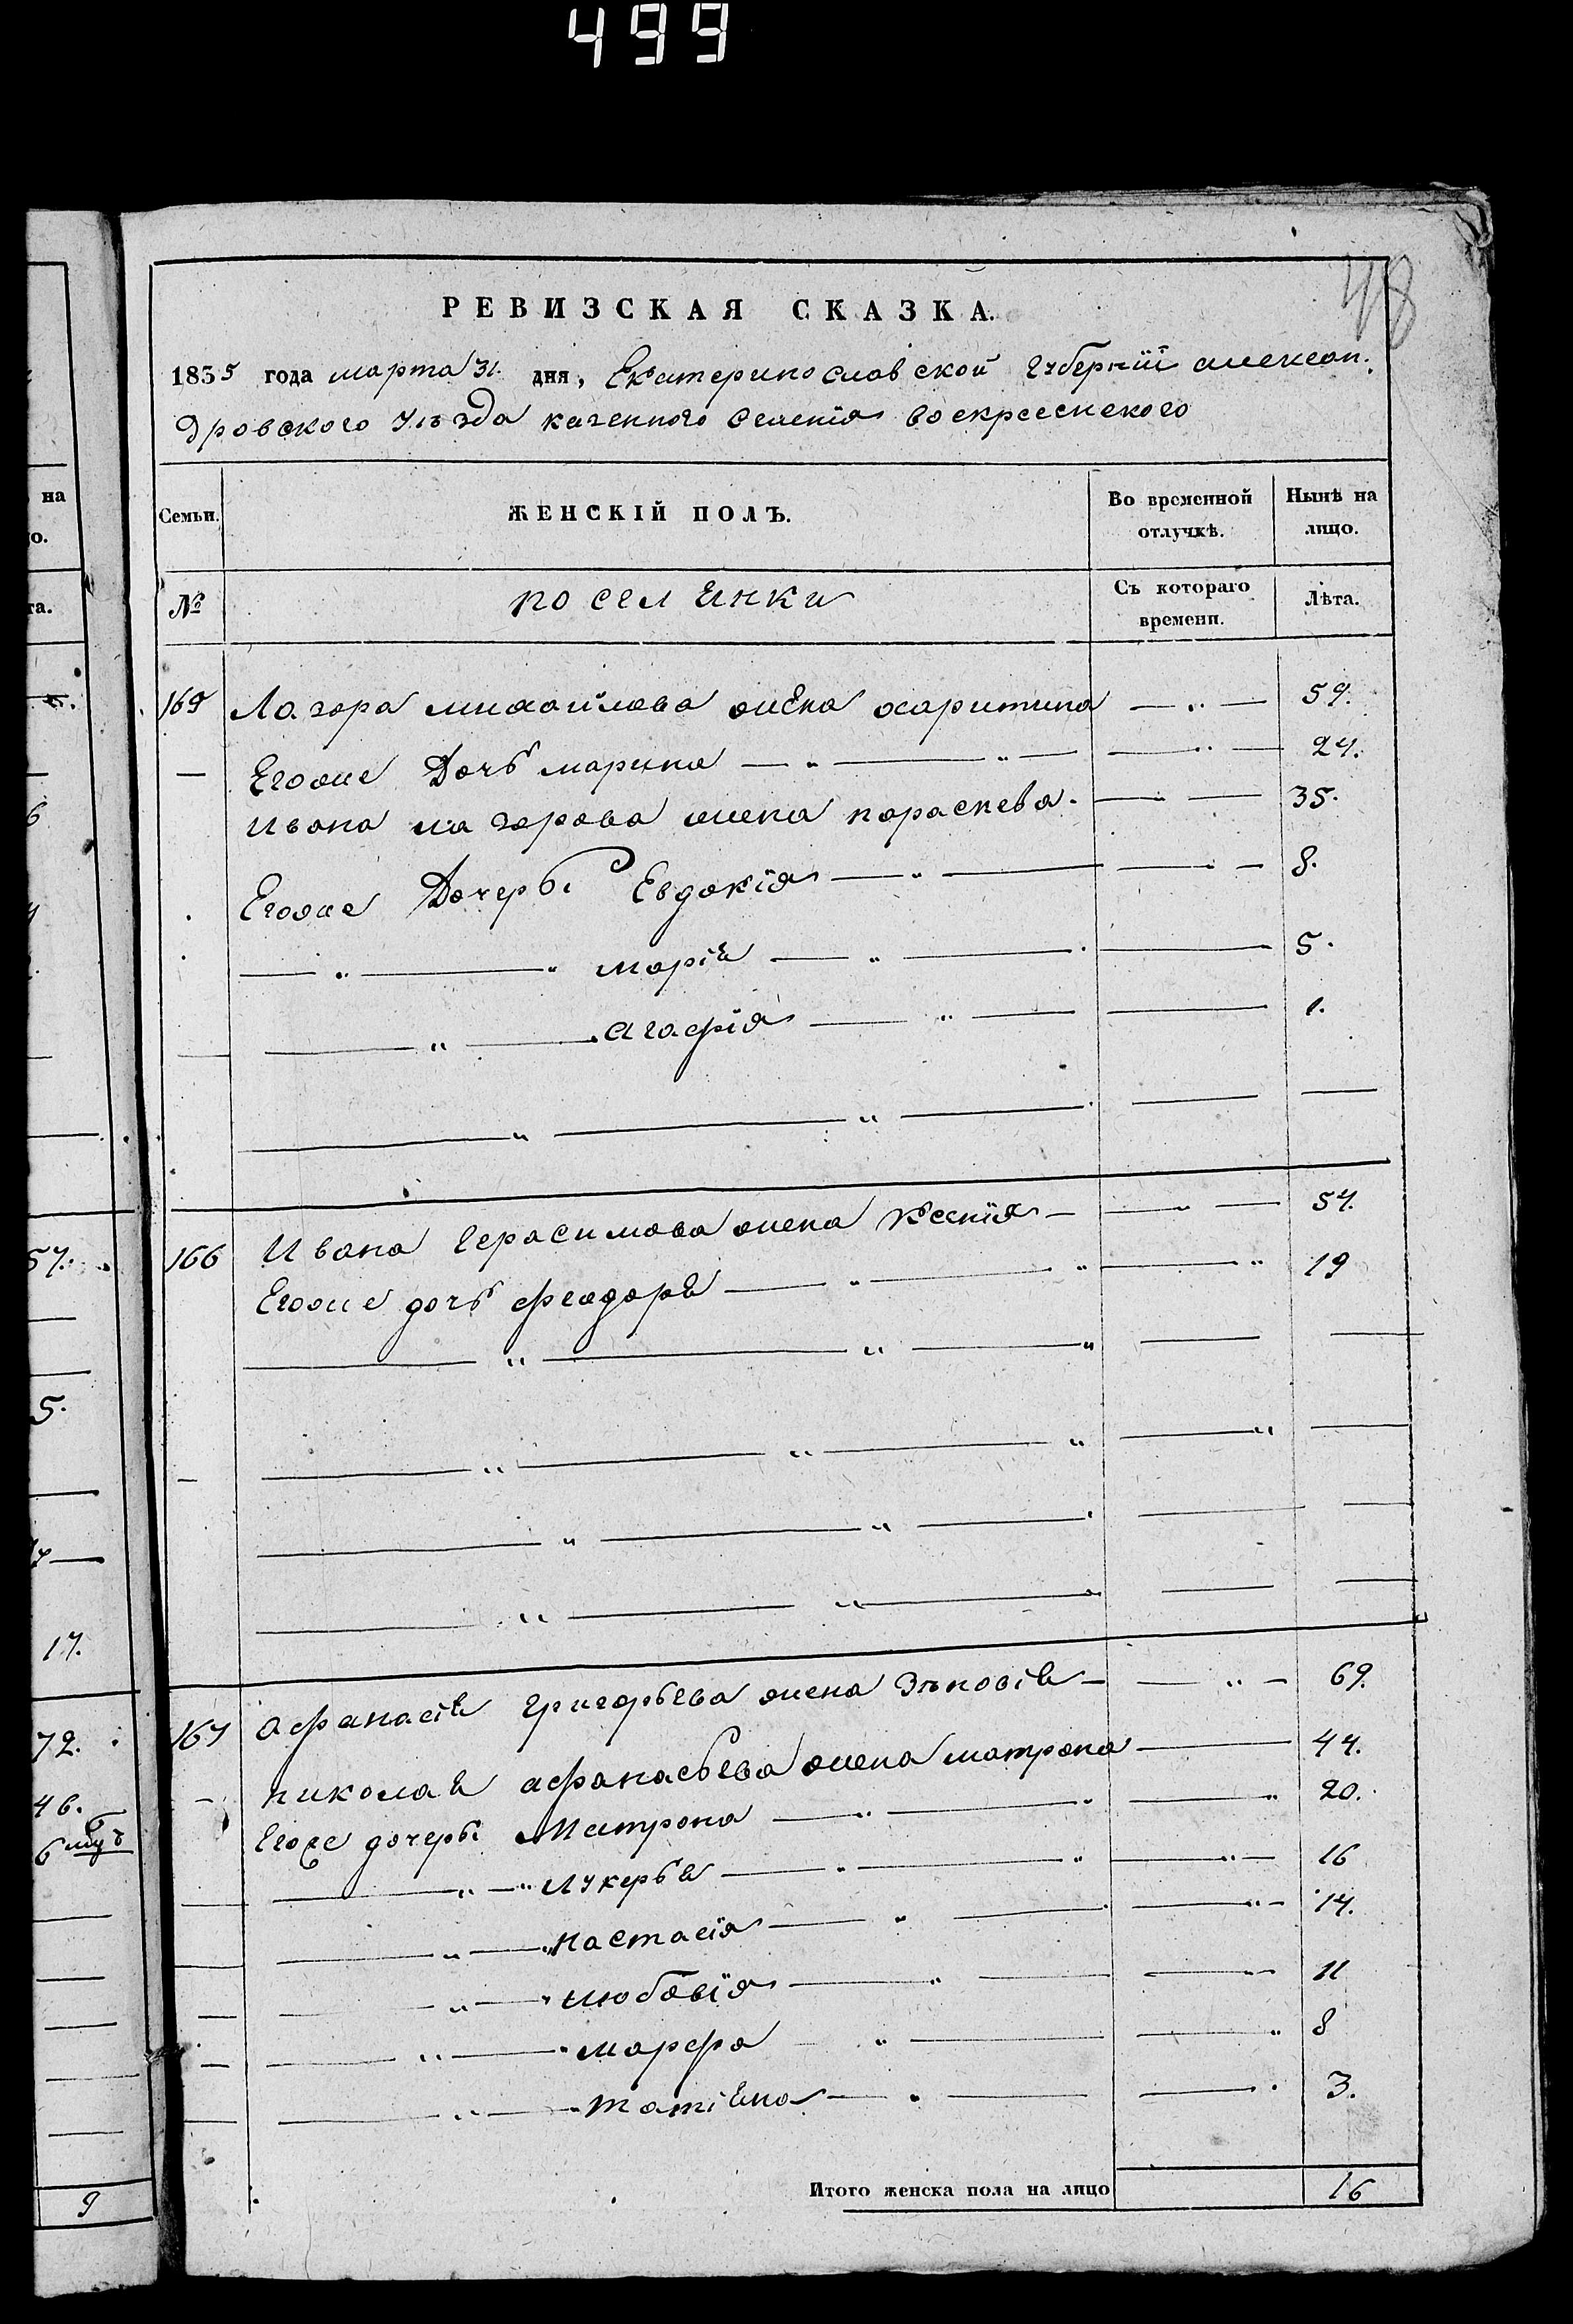 499
48
РЕВИЗСКАЯ СКАЗКА.
1835 года марта 31. дня, Екатеринославской Губерніи алексан-
дровского Уѣзда казенного селенія воскресенского
на
о.
Семьи. ЖЕНСКІЙ ПОЛЪ. Во временной отлучкѣ. Нынѣ на лицо.
та.
№ поселянки Съ котораго времени. Лѣта.
165 Лазора михайлова жена харитина — „ — 59.
— Егоже Дочь марина — „ — „ — — „ — 24.
Ивана лазорова жена параскева. — „ — 35.
Егоже Дочери Евдокія — „ — — „ — 8.
— „ — „ марія — „ — — 5.
— „ — агафія — „ — — 1.
— „ — „ — — —
166 Ивана Герасимова жена Ксенія — — „ — 54.
Егоже дочь феодора — „ — „ — „ 19
— „ — „ — „ — —
— „ — „ — „ — „ —
— „ — „ — — —
— „ — „ — — —
167 афанасія григорьева жена Зѣновія — — „ — 69.
— николая афанасьева жена матрона — 44.
Егоже дочери Матрона — „ — „ — „ 20.
— „ — „ Лукерья — „ — „ — „ — 16
— „ — „ настасія — „ — — „ — 14.
— „ — „ любовія — „ — — „ — 11
— „ — „ марфа — „ — — „ 8
— „ — „ татіяна — „ — — „ 3.
Итого женска пола на лицо 16
57.
5.
17.
72.
46.
9